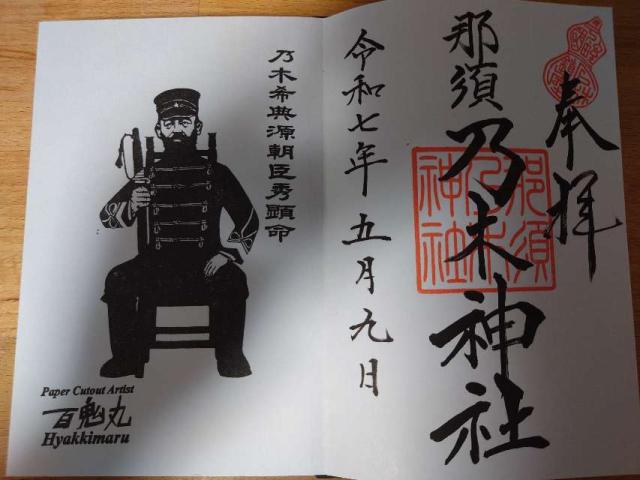 奉拝
那須乃木神社
那須乃木神社
令和七年 五月九日
乃木希典源朝臣秀顕命
Paper Cutout Artist
百鬼丸
Hyakkimaru